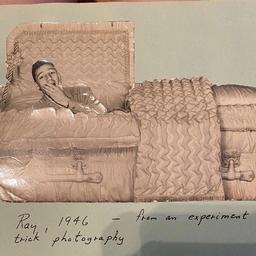 Ray, 1946 – from an experiment
trick photography